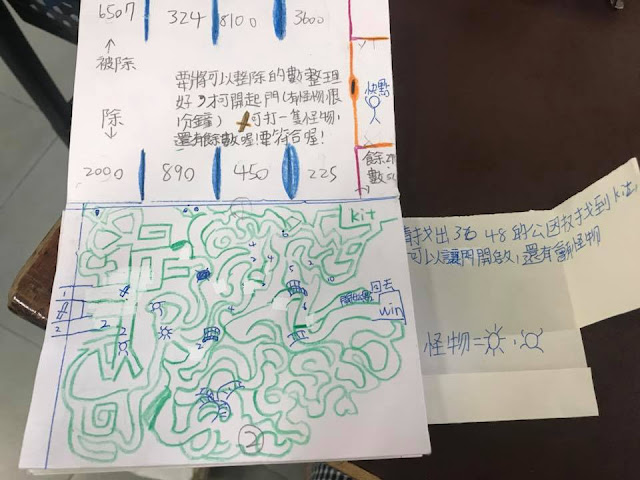 6507 324 8100 3600
被除
除
要將可以整除的數整理
好,才可開起門(有怪物很
可打一隻怪物,
還有餘數喔!要符合喔!
快點
餘
數
2000 890 450 225
kit
回去
win
1
2
2
找出36 48的公因數找到kit,
可以讓門開啟,還有
怪物=